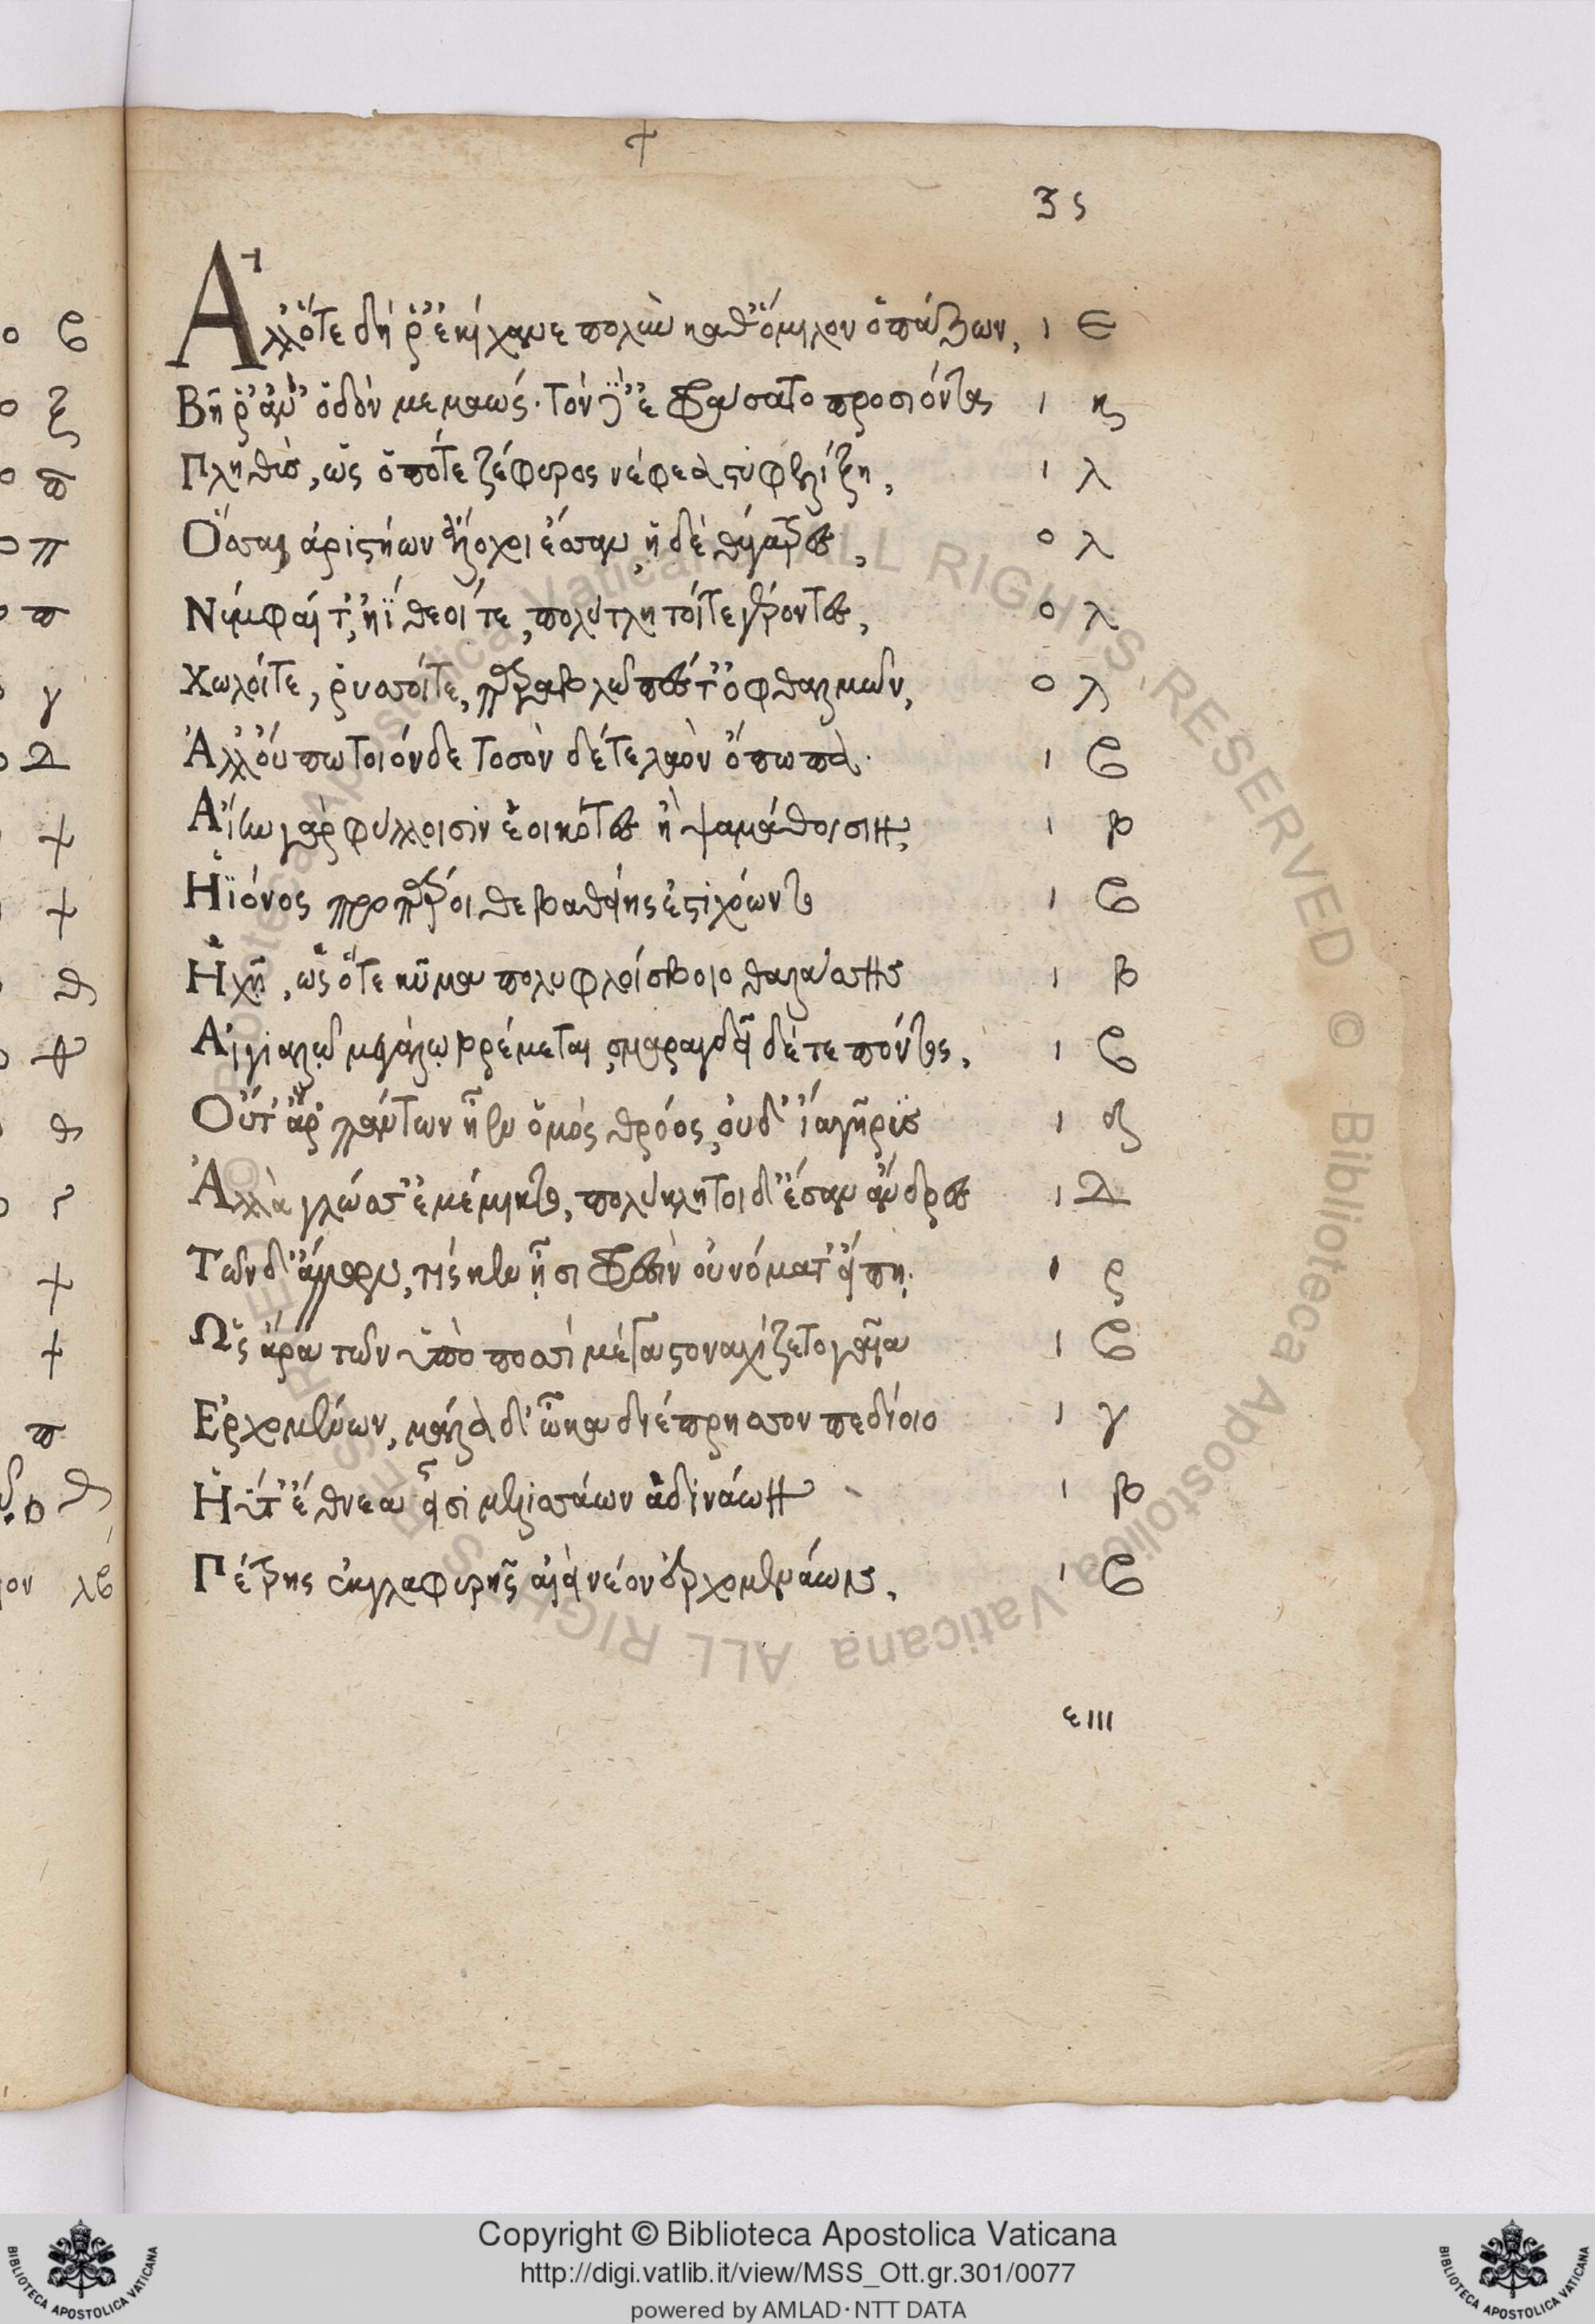 ʒς
Ἀλλ' ὅτε δή ῥ' ἐκίχανε πολὺν καθ' ὅμιλον ὀπάζων, ι ε
Βῆ ῥ' ἀν' ὁδὸν μεμαώς. τὸν δ' ἐφράσατο προσιόντος ι κ
Πληθὺς, ὡς ὁπότε ζέφυρος νέφεα στυφελίξη, ι λ
Ὅσσαι ἀριστήων ἄλοχοι ἔσαν, ἠδὲ θύγατρες, ο λ
Νύμφαι τ', ἠΐθεοί τε, πολύτλητοί τε γέροντες, ο λ
Χωλοί τε, ῥυσοί τε, παραβλῶπές τ' ὀφθαλμῶν, ο λ
Ἀλλ' οὔπω τοιόνδε τοσόν δέ τε λαὸν ὄπωπα. ι β
Λίην γὰρ φύλλοισιν ἐοικότες ἢ ψαμάθοισιν, ι β
Ἠϊόνος προπάροιθε βαθείης ἐστιχόωντο ι β
Ἠχῇ, ὡς ὅτε κῦμα πολυφλοίσβοιο θαλάσσης ι β
Αἰγιαλῷ μεγάλῳ βρέμεται, σμαραγεῖ δέ τε πόντος, ι β
Οὔτ' ἄρ' πάντων ἦεν ὁμὸς θρόος, οὐδ' ἴα γῆρυς ι δ
Ἀλλὰ γλῶσσ' ἐμέμικτο, πολύκλητοι δ' ἔσαν ἄνδρες ι δ
Τῶν δ' ἄμμορον, τίς κεν ᾗσι φρεσὶν οὐνόματ' εἴπη. ι ρ
Ὣς ἄρα τῶν ὑπὸ ποσσὶ μέγα στοναχίζετο γαῖα ι β
Ἐρχομένων, μάλα δ' ὦκα διέπρησσον πεδίοιο ι γ
Ἠΰτ' ἔθνεα εἶσι μελισσάων ἀδινάων ι β
Πέτρης ἐκ γλαφυρῆς αἰεὶ νέον ἐρχομενάων, ι β
ειιι
Copyright © Biblioteca Apostolica Vaticana
http://digi.vatlib.it/view/MSS_Ott.gr.301/0077
powered by AMLAD·NTT DATA